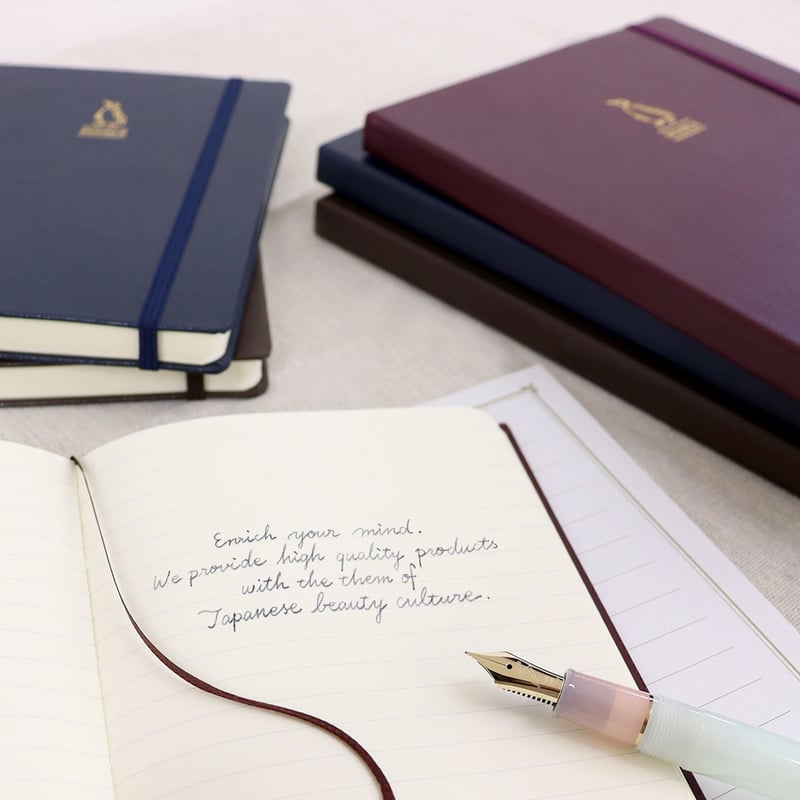 Enrich your mind.
We provide high quality products
with the them of
Japanese beauty culture.